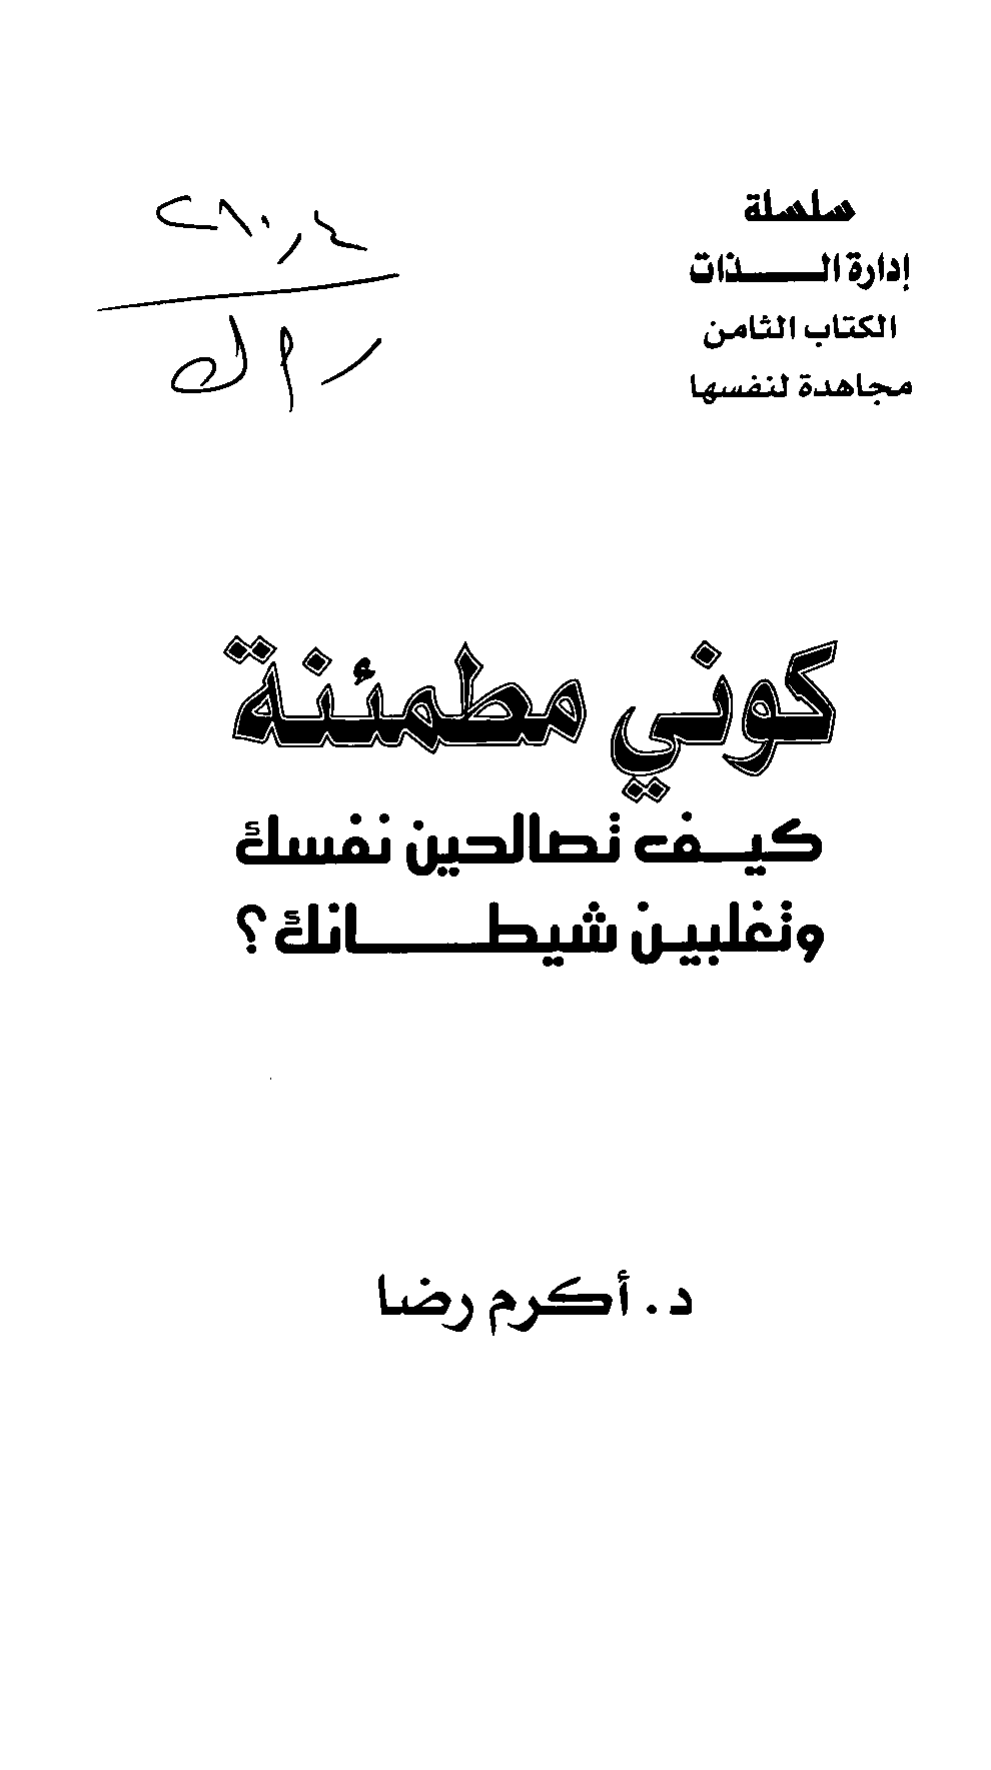 سلسلة
إدارة الـــذات
الكتاب الثامن
مجاهدة لنفسها
كوني مطمئنة
كيـف تصالحين نفسك
وتغلبين شيطـــانك؟
د. أكرم رضا